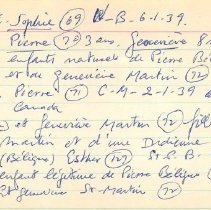 Sophie (69) B-6-1.39.
Pierre (70) 3 ans, Geneviève 8
enfants naturels de Pierre Bé
et de Geneviève Martin (72)
Pierre (71) C-M-2-1.39
Canada
et Geneviève Martin (72) fil
Martin et d'une Indienne
(Béligne) Esther (127) St. C. B.
enfant légitime de Pierre Béligne (
et Geneviève St-Martin (72)